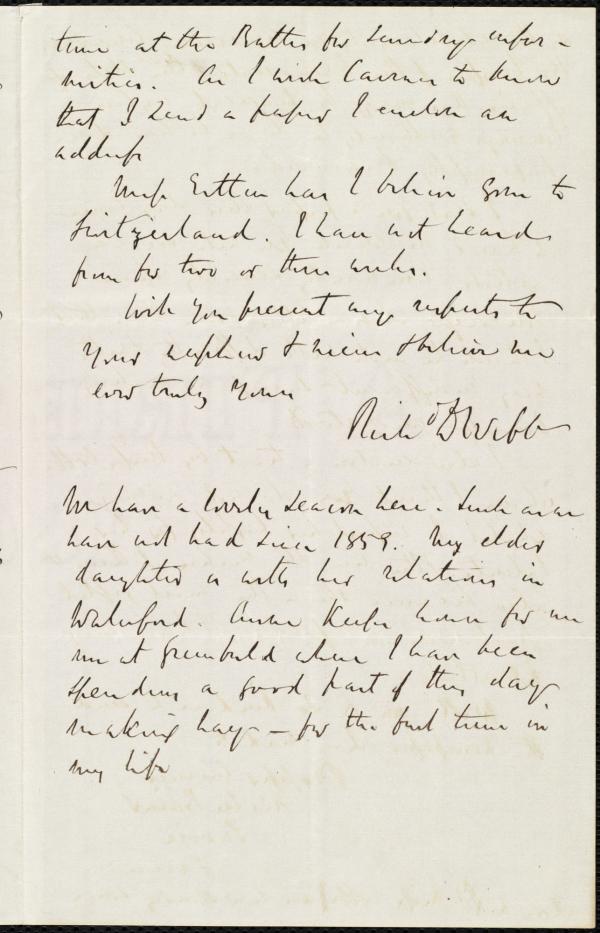 time at the Baths for sundry infir-
mities. As I wish Cairnes to know
that I send a paper I enclose an
address
Miss Estlin has I believe gone to
Switzerland. I have not heard
from for two or three weeks.
Will you present my respects to
your nephew & nieces & believe me
ever truly yours
Richd D Webb
We have a lovely season here. Such as we
have not had since 1859. My elder
daughter is with her relations in
Waterford. Anne Keeps house for me
me at Greenfield where I have been
spending a good part of this day
making hay - for the first time in
my life